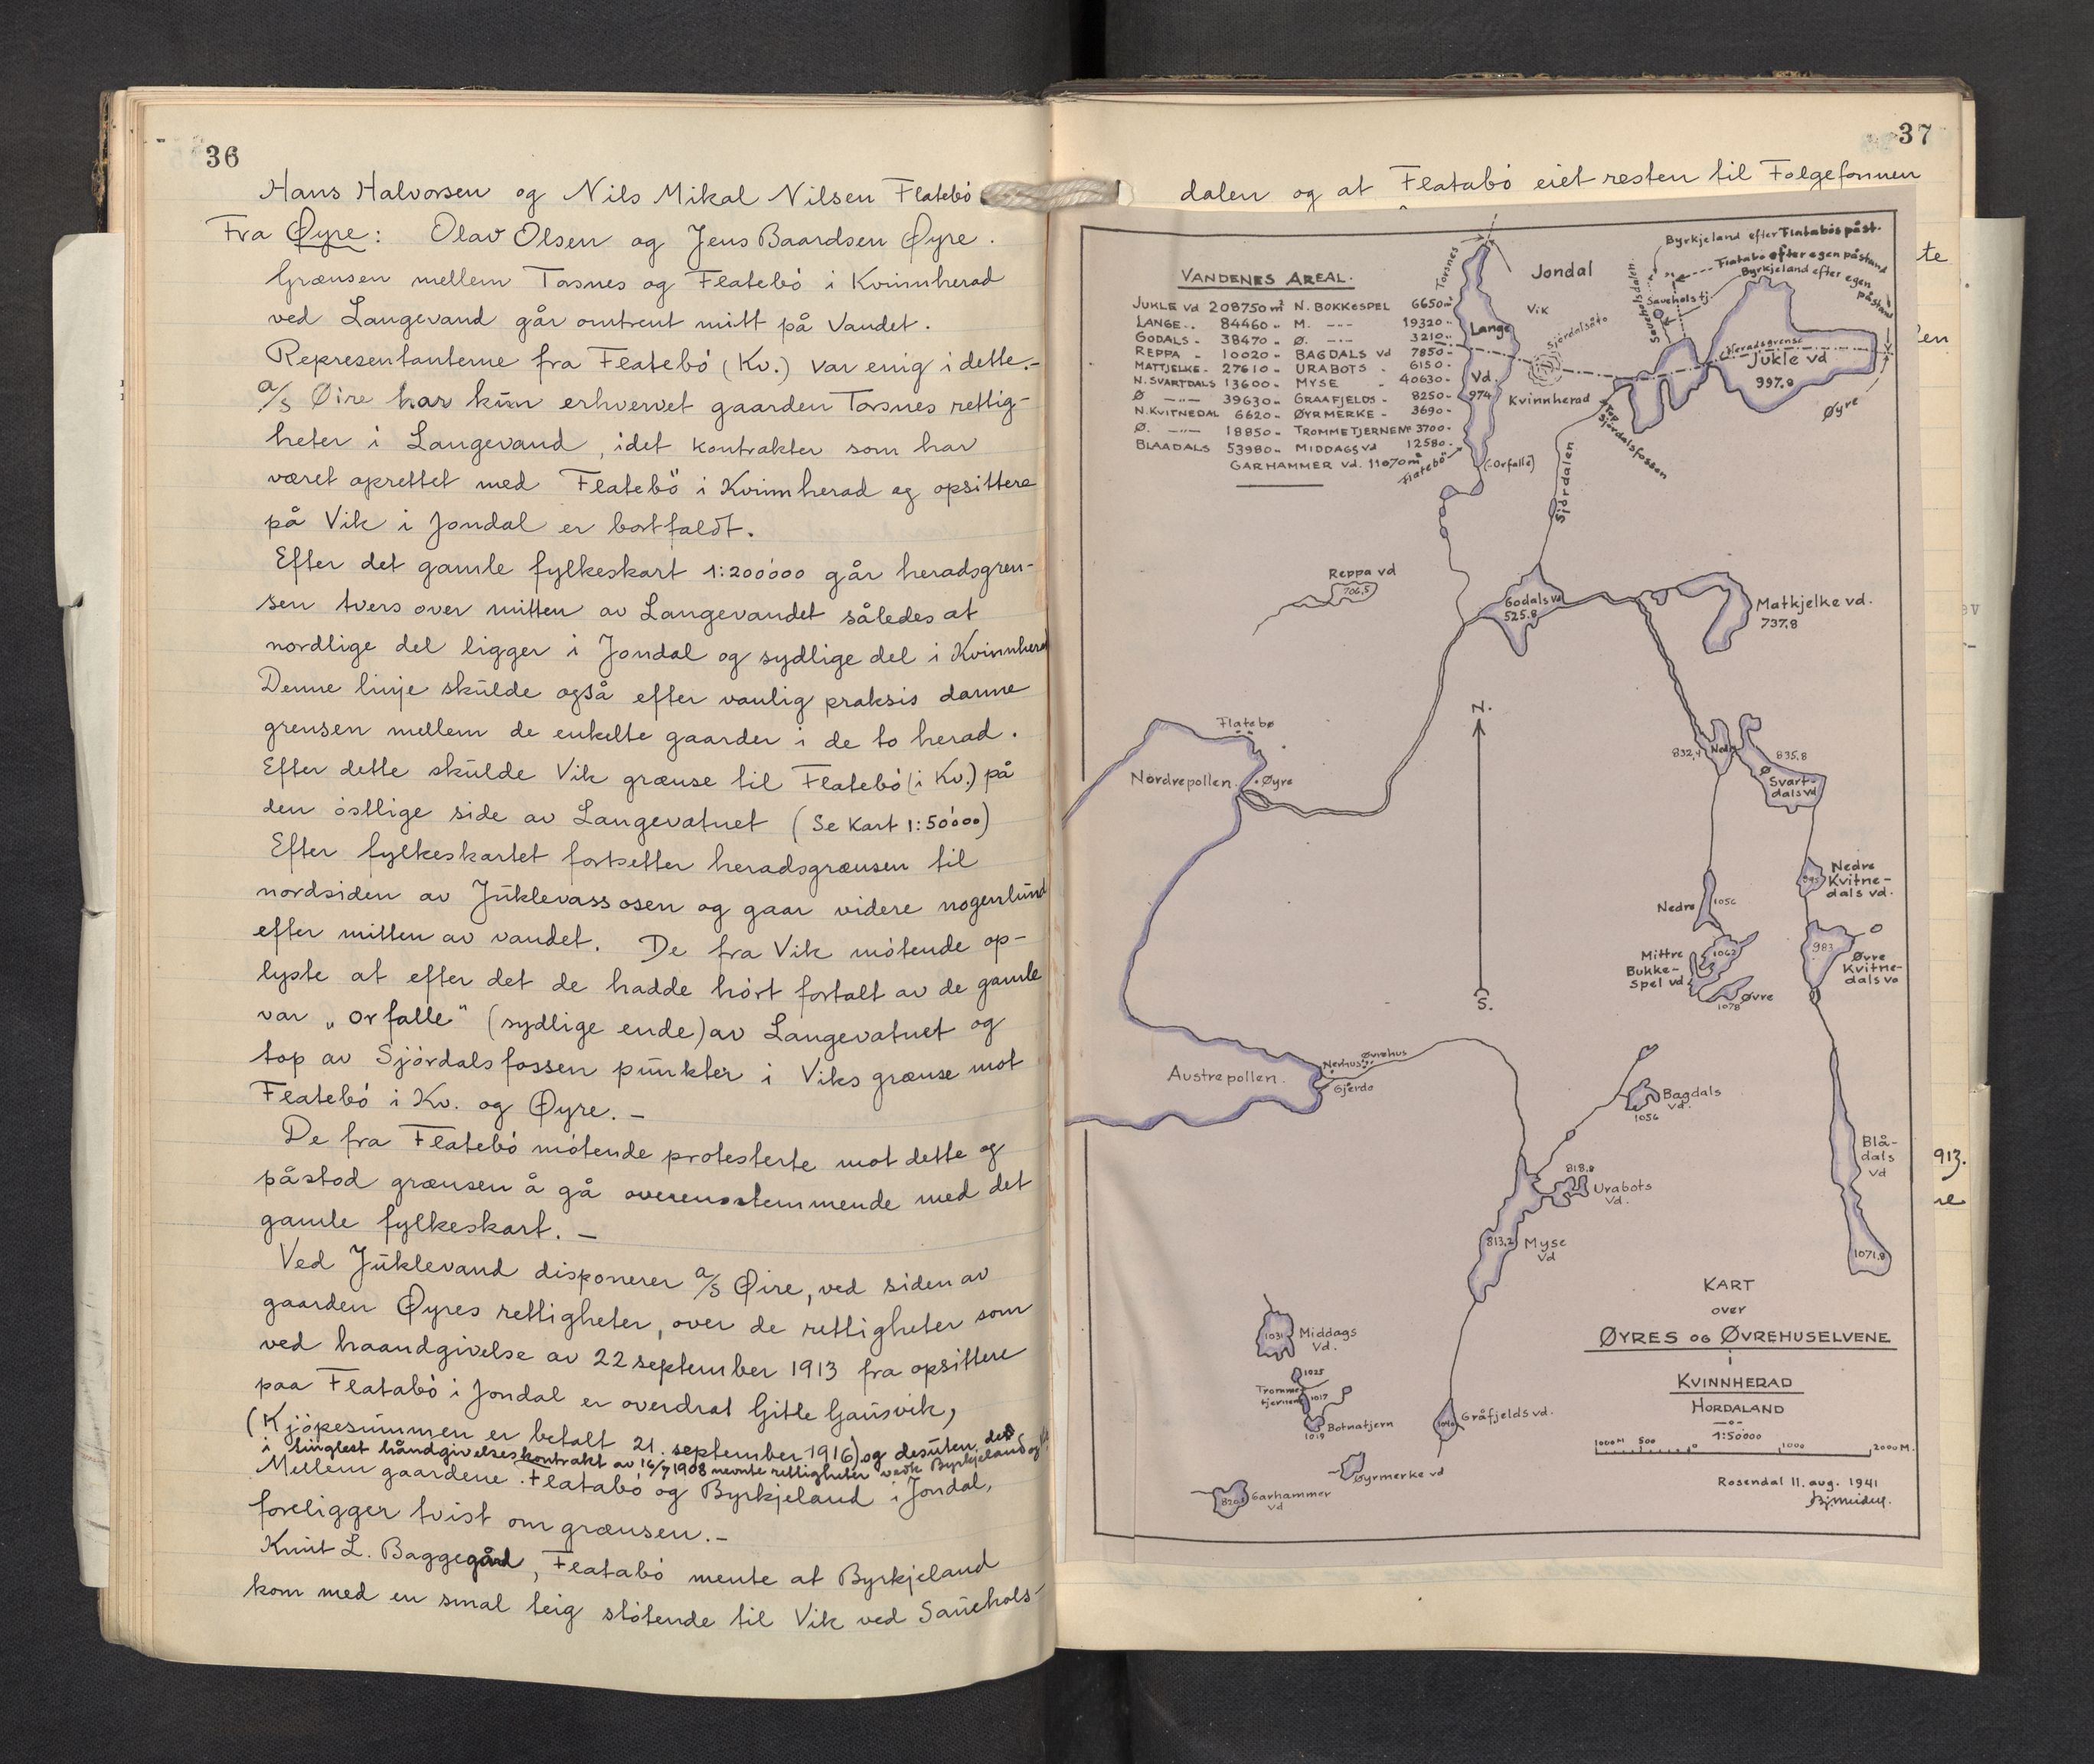 36
Hans Halvorsen og Nils Mikal Nilsen Flatebö
Fra Øyre: Olav Olsen og Jens Baardsen Øyre.
Grænsen mellem Torsnes og Flatebö i Kvinnherad
ved Langevand går omtrent mitt på vandet.
Representanterne fra Flatebö (Kv.) var enig i dette.-
a/s Øire har kun erhvervet gaarden Torsnes rettig-
heter i Langevand, idet kontrakter som har
været oprettet med Flatebö i Kvinnherad og opsittere
på Vik i Jondal er bortfaldt.
Efter det gamle fylkeskart 1:200000 går heradsgren-
sen tvers over mitten av Langevandet således at
nordlige del ligger i Jondal og sydlige del i Kvinnherad
Denne linje skulde også efter vanlig praksis danne
grensen mellem de enkelte gaarder i de to herad.
Efter dette skulde Vik grænse til Flatebö (i Kv.) på
den östlige side av Langevatnet (Se Kart 1:50000)
Efter fylkeskartet fortsetter heradsgrænsen til
nordsiden av Juklevassosen og gaar videre nogenlund
efter mitten av vandet. De fra Vik mötende op-
lyste at efter det de hadde hört fortalt av de gamle
var „orfalle" (sydlige ende) av Langevatnet og
top av Sjördalsfossen punkter i Viks grænse mot
Flatebö i Kv. og Øyre. —
De fra Flatebö mötende protesterte mot dette og
påstod grænsen å gå overensstemmende med det
gamle fylkeskart. —
Ved Juklevand disponerer a/s Øire, ved siden av
gaarden Øyres rettigheter, over de rettigheter som
ved haandgivelse av 22 september 1913 fra opsittere
paa Flatabö i Jondal er overdrat Gitle Gausvik,
(Kjöpesummen er betalt 21. september 1916) og desuten de
i tinglest håndgivelseskontrakt av 16/7 1908 nevnte rettigheter vedk Byrkjeland og
Mellem gaardene Flatabö og Byrkjeland i Jondal,
foreligger tvist om grænsen.—
Knut L. Baggegård, Flatabö mente at Byrkjeland
kom med en smal teig stötende til Vik ved Sauehols-
37
dalen og at Flatabö eiet resten til Folgefonnen
te
len
ev
913.
re
VANDENES AREAL.
JUKLE Vd 208750 m² N. BOKKESPEL 6650 m²
LANGE.. 84460 „ M. --- 19320 „
GODALS - 38470 „ Ø. --- 3210 „
REPPA - 10020 „ BAGDALS vd 7850 „
MATTJELKE- 27610 „ URABOTS - 6150 „
N. SVARTDALS 13600 „ MYSE - 40630 „
Ø --- 39630 „ GRAAFJELDS - 8250 „
N. KVITNEDAL 6620 „ ØYRMERKE - 3690 „
Ø. --- 18850 „ TROMMETJERNENE 3700 „
BLAADALS 53980 „ MIDDAGS vd 12580 „
GARHAMMER Vd. 11070 m²
Torsnes
Jondal
Vik
Byrkjeland efter Flatabös påst.
Flatabö efter egen påstand
Byrkjeland efter egen
påstand
Saueholsdalen
Saueholstj.
Sjördalsåta
Lange
Vd.
974
Heradsgrense
Jukle vd
997.8
Kvinnherad
Øyre
Top
Sjördalsfossen
Flatebö
(:Orfalle)
Sjördalen
Reppa vd
706,5
Godals vd
525.8
Matkjelke vd.
737.8
N.
S.
Flatebø
Nordrepollen
Øyre
832,4
Nedre
835,8
Ø
Svart-
dals vd
Nedre
1056
Nedre
Kvitne-
dals vd.
Mittre
Bukke-
spel vd
1062
Øvre
1078
983
Øvre
Kvitne-
dals vd
Austrepollen.
Nerhus
Øvrehus
Gjerde
Bagdals
vd.
1056
818.8
Urabots
Vd.
813,2
Myse
Vd
Blå-
dals
vd
1071,8
1031
Middags
Vd.
1025
Tromme
tjernene
1017
Botnatjern
1019
Gråfjelds vd.
Øyrmerke vd
Garhammer
vd
KART
over
ØYRES OG ØVREHUSELVENE
i
KVINNHERAD
HORDALAND
1:50000
1000 M 500 0 1000 2000 M.
Rosendal 11. aug. 1941